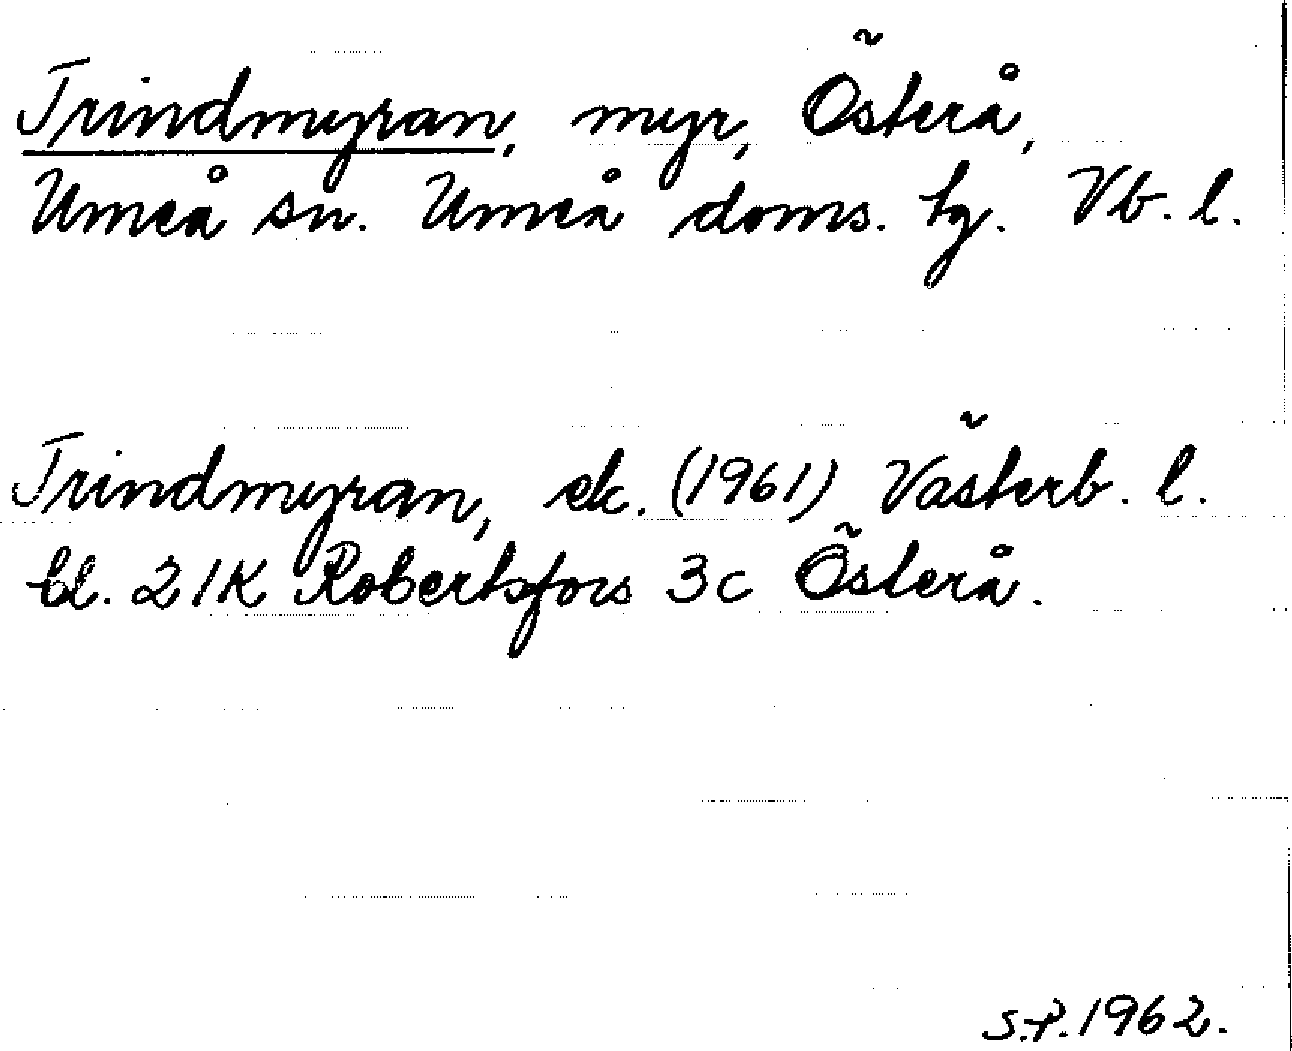 Trindmyran, myr, Österå,
Umeå sn. Umeå doms. tg. Vb. l.
Trindmyran, ek. (1961) Västerb. l.
bl. 21K Robertsfors 3c Österå.
S.P. 1962.